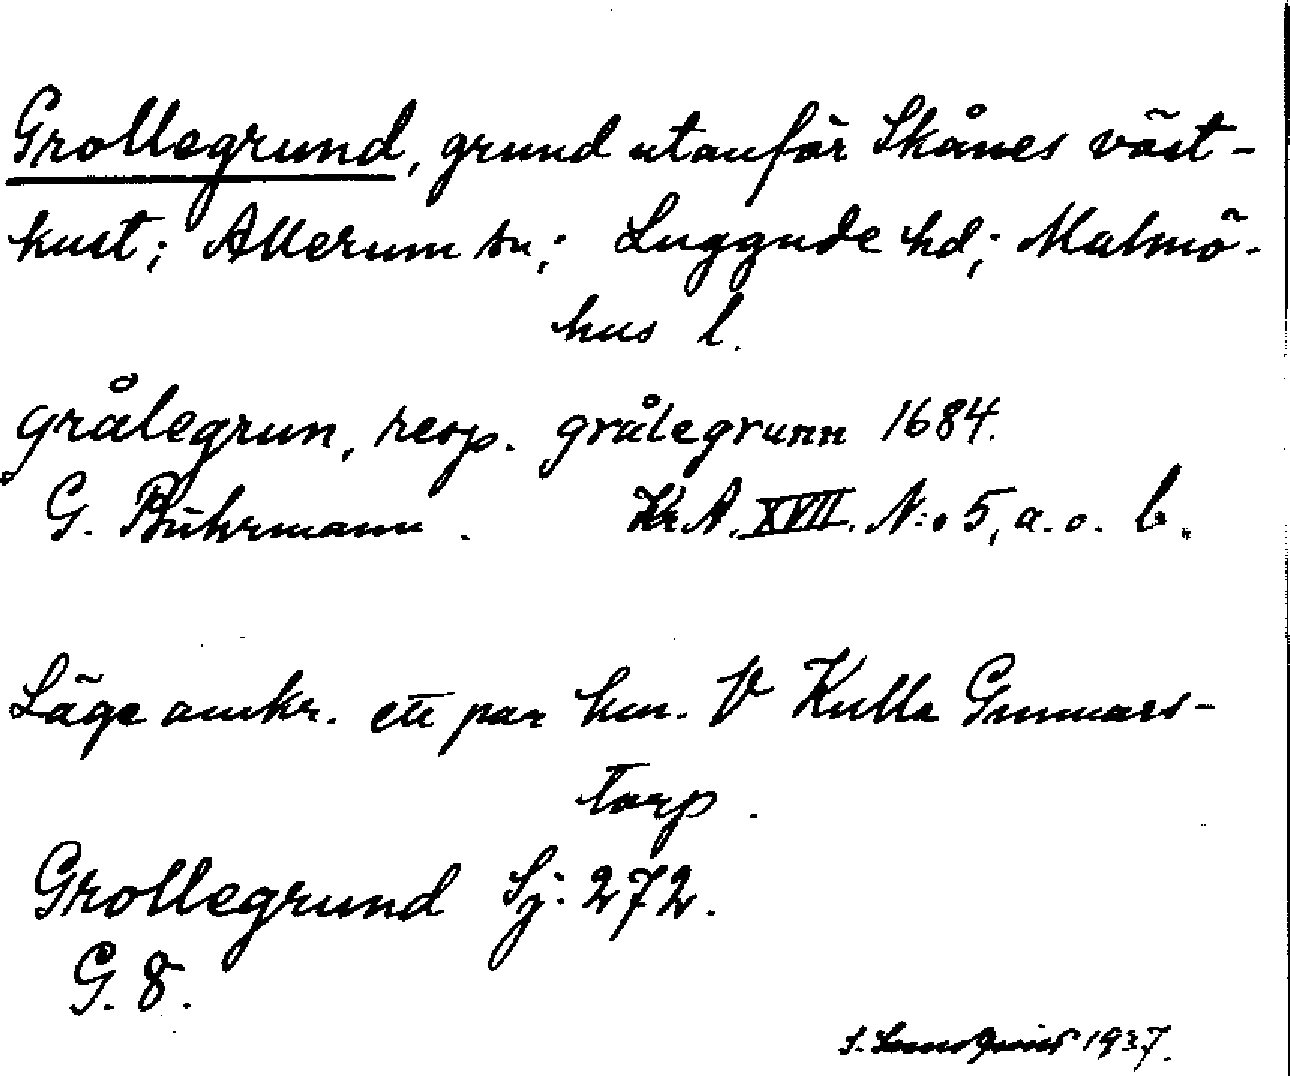 Grollegrund, grund utanför Skånes väst-
kust; Allerum sn.; Luggude hd; Malmö-
hus l.
grålegrun, resp. grålegrunn 1684.
G. Buhrmann. Kr.A. XVII. N:o 5, a. o. b.
Läge omkr. ett par km. V Kulla Gunnars-
torp.
Grollegrund Sj: 272.
G. 8.
1937.